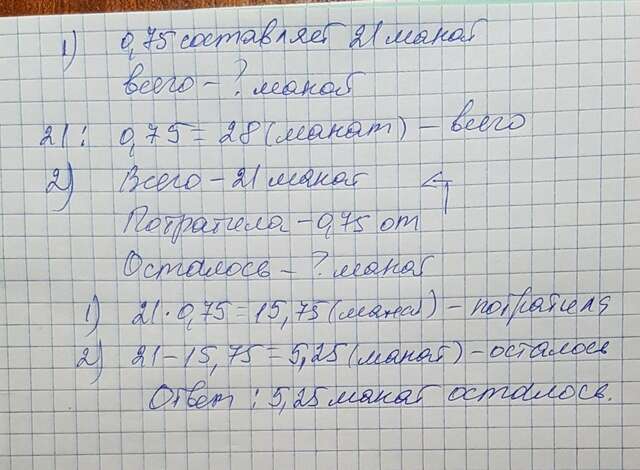 1) 0,75 составляет 21 манат
всего - ? манат
21 : 0,75 = 28 (манат) - всего
2) Всего - 21 манат
Потратила - 0,75 от
Осталось - ? манат
1) 21 · 0,75 = 15,75 (манат) - потратила
2) 21 - 15,75 = 5,25 (манат) - осталось
Ответ : 5,25 манат осталось.